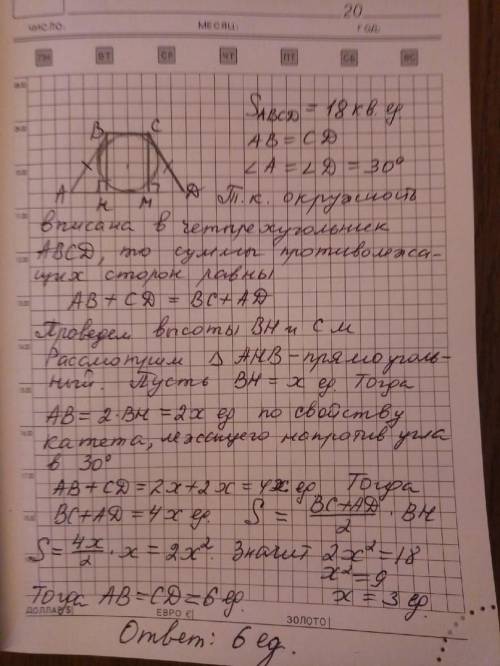 20
ЧИСЛО:
МЕСЯЦ:
ГОД:
ПН ВТ СР ЧТ ПТ СБ ВС
S ABCD = 18 кв. ед
AB = CD
∠A = ∠D = 30°
B C
A H M D
Т.к. окружность
вписана в четырехугольник
ABCD, то суммы противолежа-
щих сторон равны
AB + CD = BC + AD
Проведем высоты BH и CM
Рассмотрим △ AHB - прямоуголь-
ный. Пусть BH = x ед Тогда
AB = 2·BH = 2x ед по свойству
катета, лежащего напротив угла
в 30°
AB + CD = 2x + 2x = 4x ед Тогда
BC + AD = 4x ед. S = (BC + AD)/2 · BH
S = 4x/2 · x = 2x². Значит 2x² = 18
x² = 9
Тогда AB = CD = 6 ед. x = 3 ед.
ДОЛЛАР $ ЕВРО € ЗОЛОТО
Ответ: 6 ед.